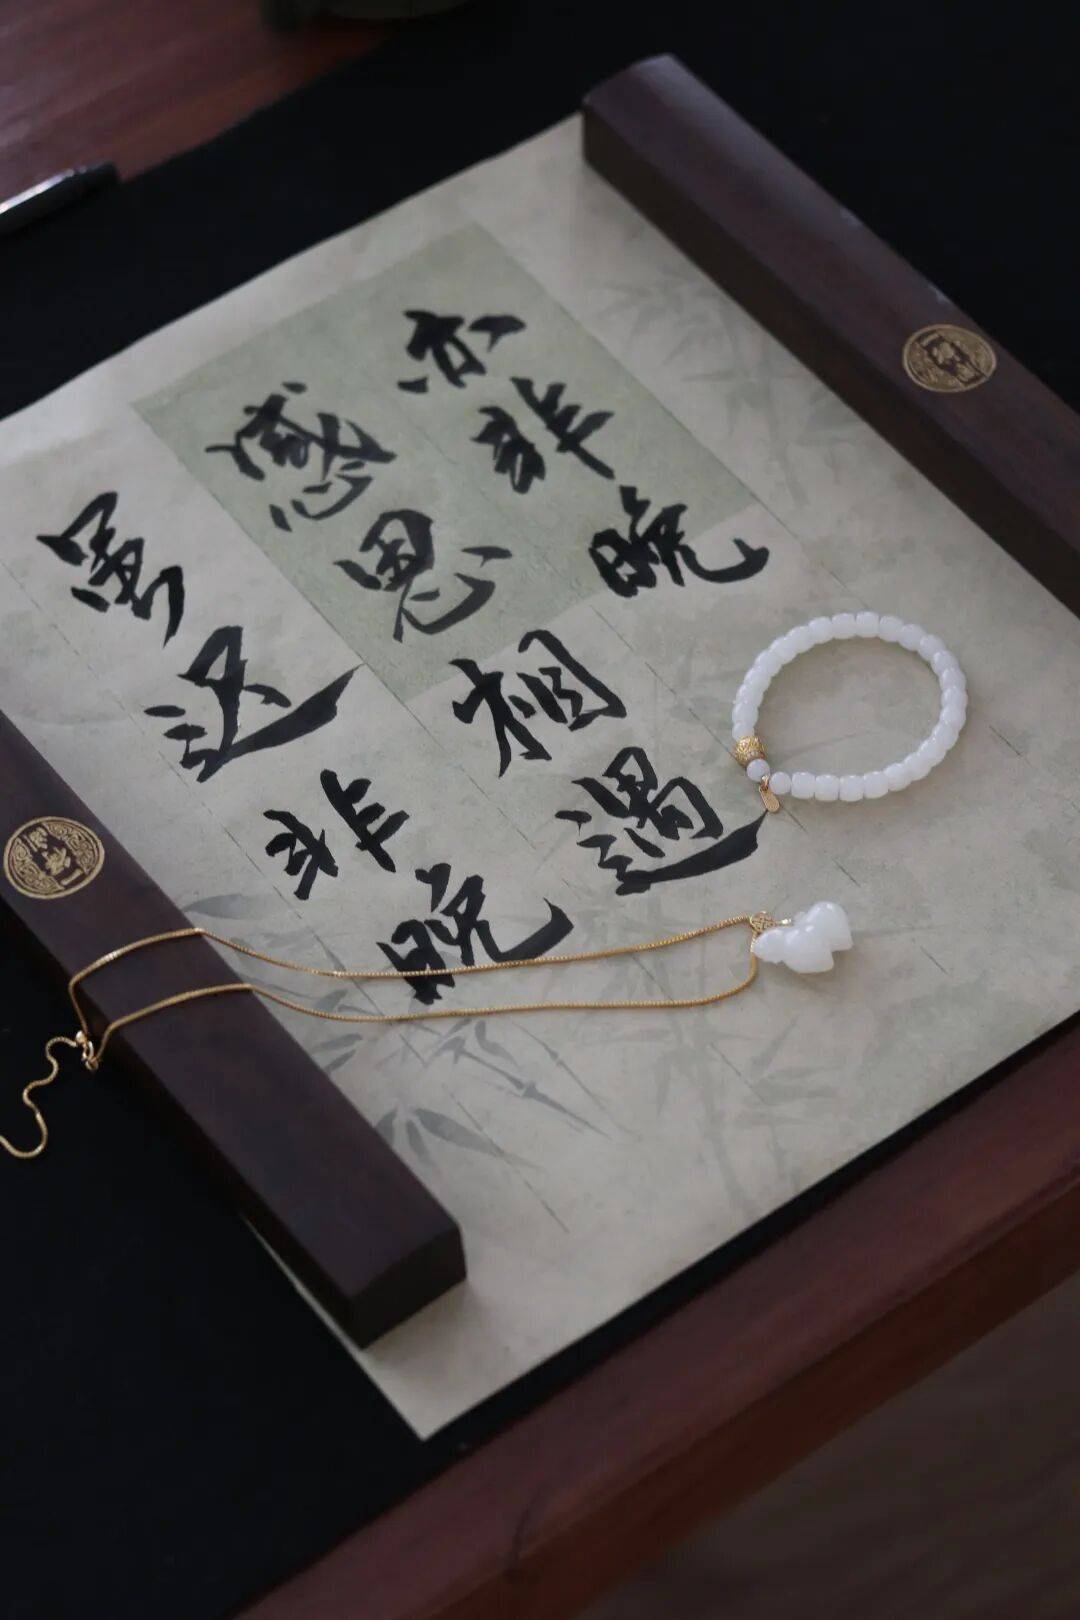 亦非晚
感恩相遇
虽迟非晚